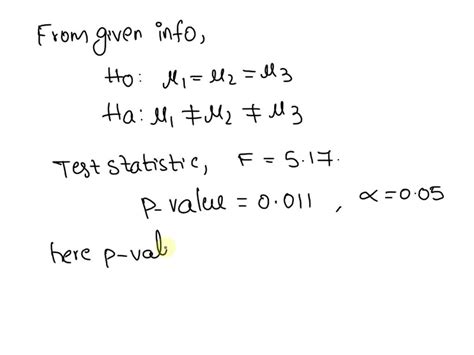 From given info,
Ho: μ1 = μ2 = μ3
Ha: μ1 ≠ μ2 ≠ μ3
Test statistic, F = 5.17.
P-value = 0.011 , α = 0.05
here p-val